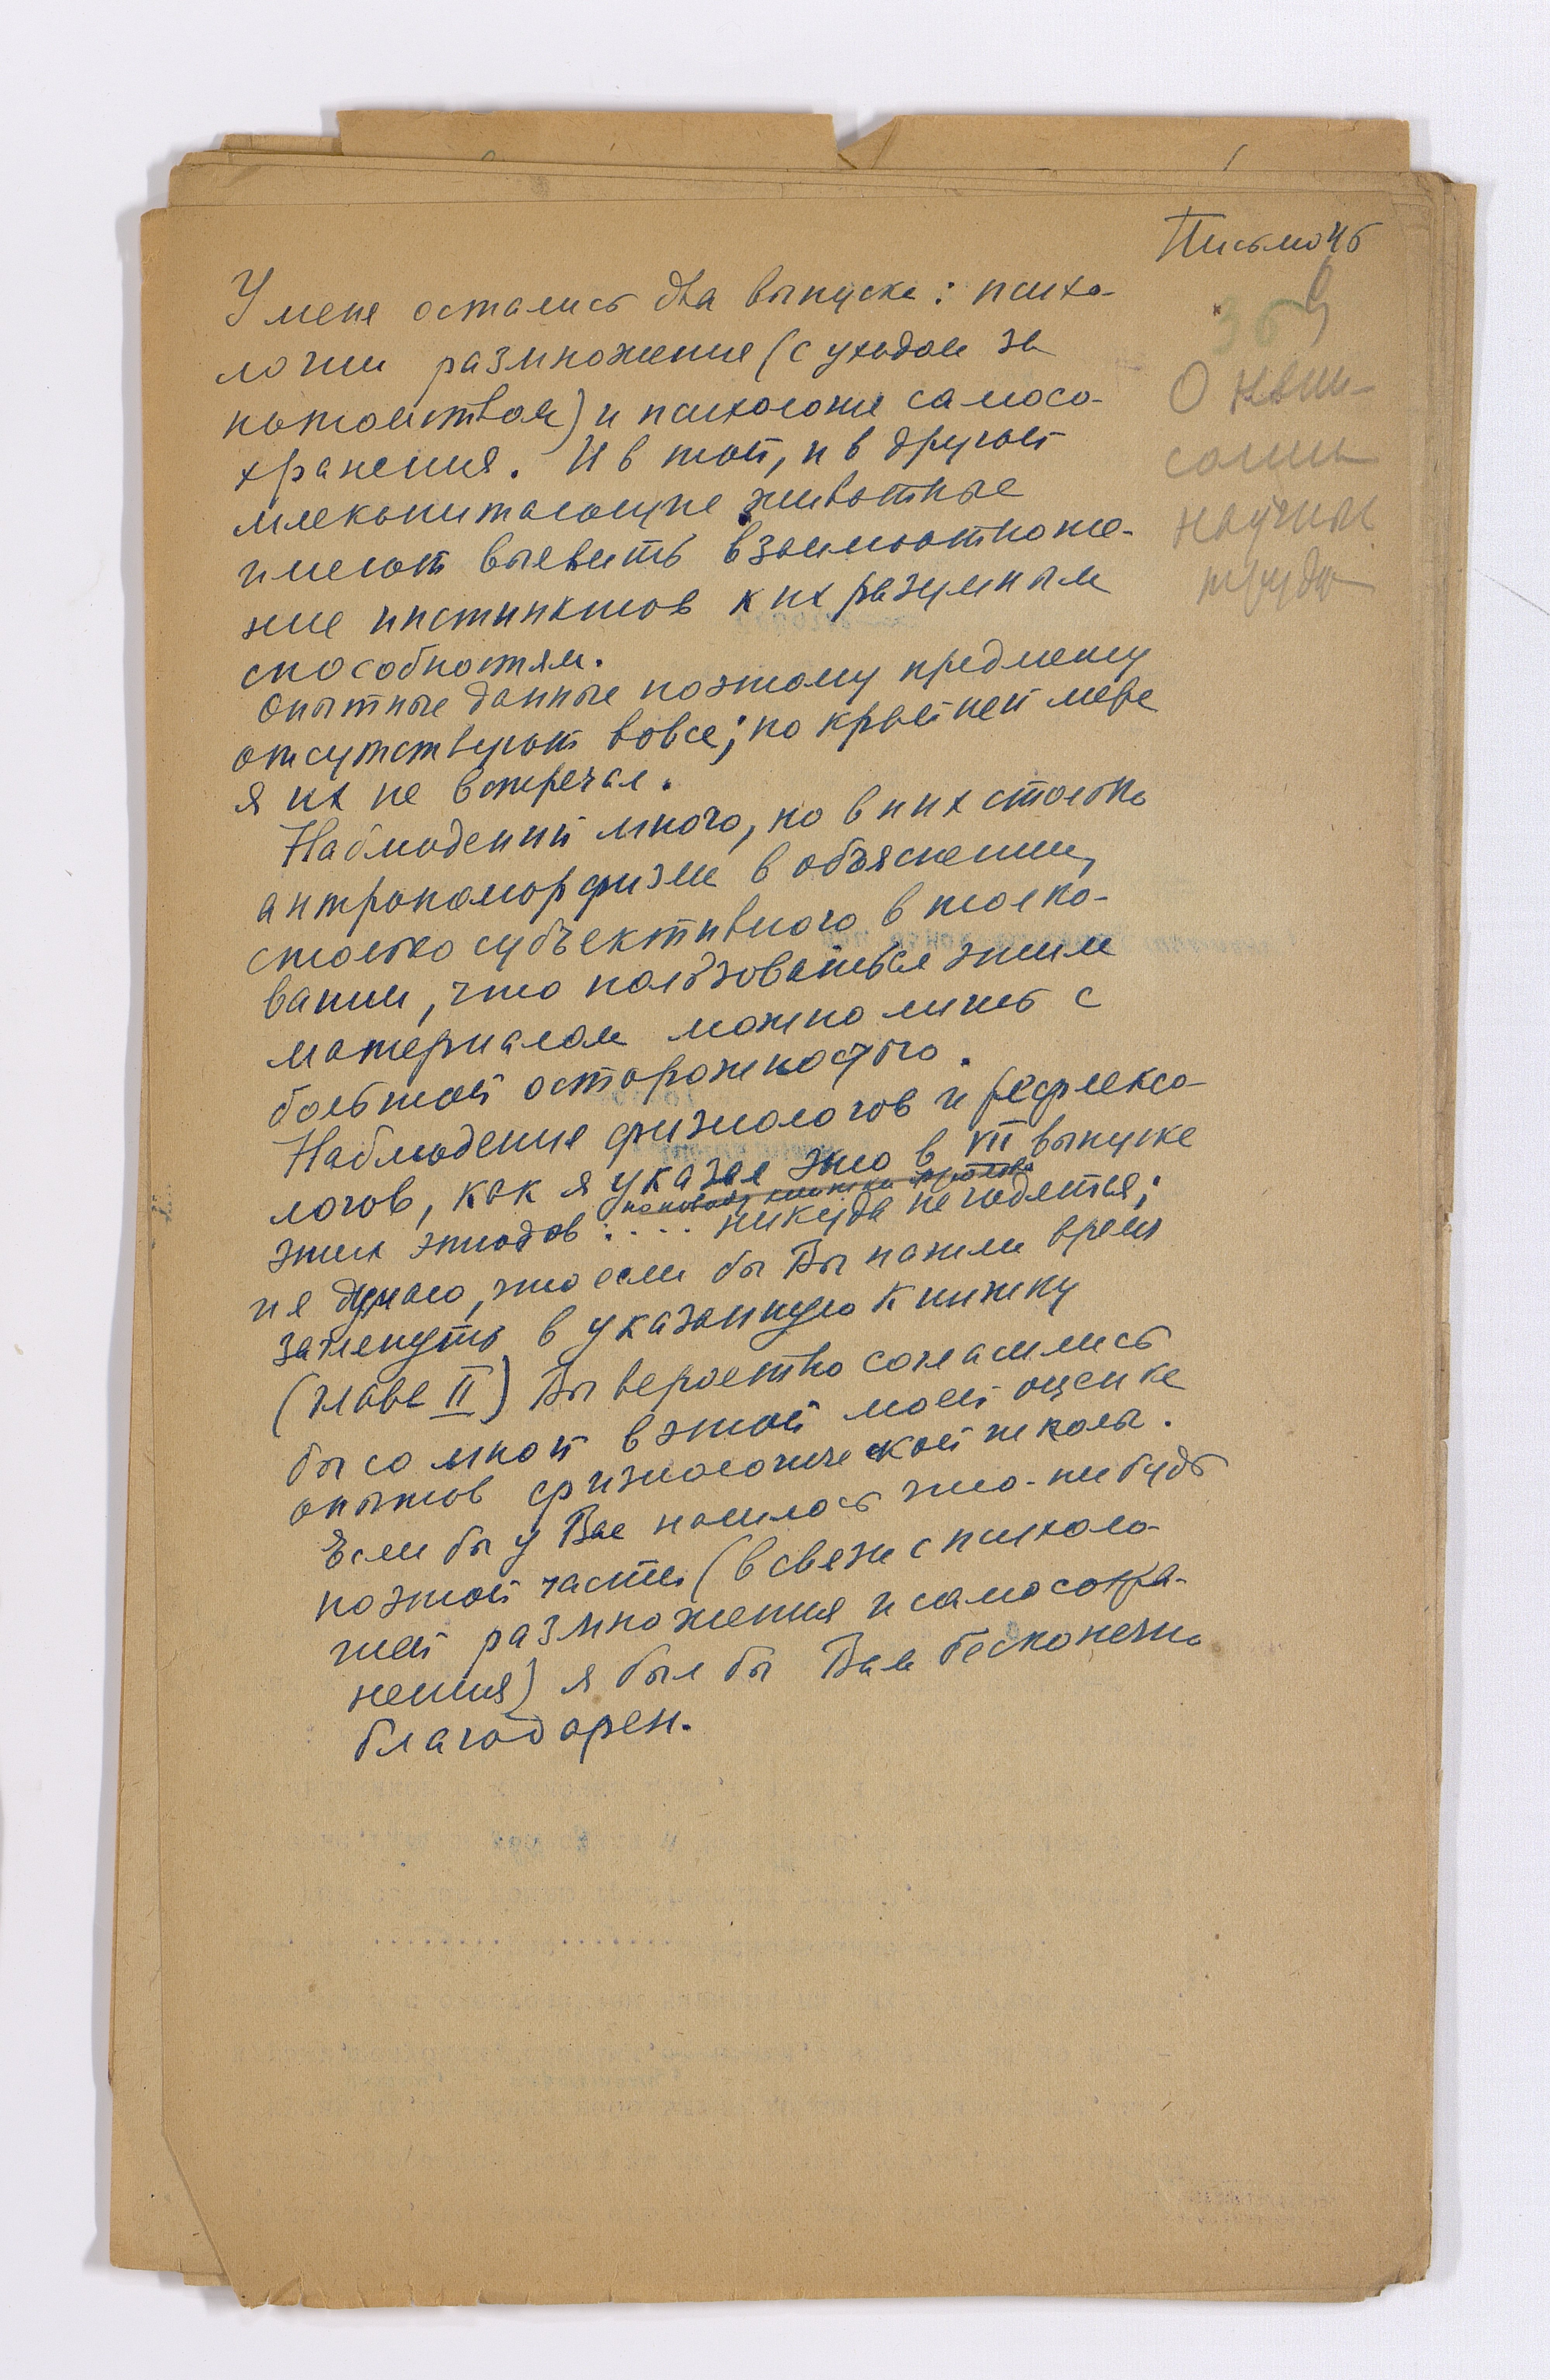 Письмо 45
У меня остались два выпуска: психо-
логии размножения (с уходом за
потомством) и психология самосо-
хранения. И в той, и в другой
млекопитающие животные
имеют выявить взаимоотноше-
ние инстинктов к их разумным
способностям.
Опытные данные поэтому предмету
отсутствуют вовсе; по крайней мере
я их не встречал.
Наблюдений много, но в них столько
антропоморфизма в объяснении,
столько субъективного в толко-
вании, что пользоваться этим
материалом можно лишь с
большой осторожностью.
Наблюдения физиологов и рефлексо-
логов, как я указал это в VII выпуске
этих этюдов: .... никуда не годятся;
и я думаю, что если бы Вы нашли время
заглянуть в указанную книжку
(глава II) Вы вероятно согласились
бы со мной в этой моей оценке
опытов физиологической школы.
Если бы у Вас нашлось что-нибудь
поэтой части (в связи с психоло-
гией размножения и самосохра-
нения) я был бы Вам бесконечно
благодарен.
О напи-
сании
научных
труда